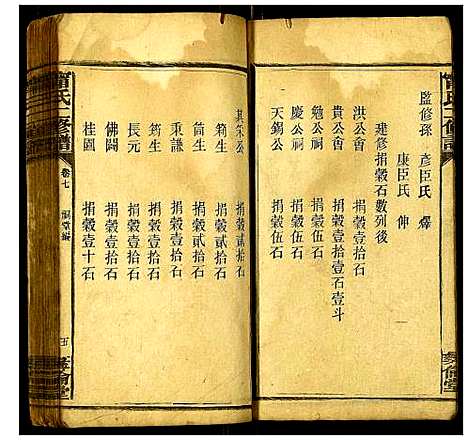 監修孫 彥臣氏
康臣氏 伸
建修捐穀石數列後
洪公會 捐穀壹拾石
貴公會 捐穀壹拾壹石壹斗
勉公祠 捐穀伍石
慶公祠 捐穀伍石
天錫公 捐穀伍石
其荣公 捐穀貳拾石
筠生 捐穀貳拾石
茼生 捐穀貳拾石
秉謙 捐穀壹拾石
筠生 捐穀壹拾石
長元 捐穀壹拾石
佛閣 捐穀壹拾石
桂園 捐穀壹十石
氏二修譜
卷七
祠堂編
五